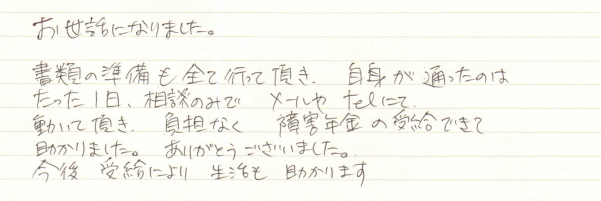 お世話になりました。
書類の準備も全て行って頂き、自身が通ったのは
たった1日、相談のみで メールや telにて、
動いて頂き、負担なく 障害年金の受給できて
助かりました。ありがとうございました。
今後 受給により 生活も 助かります